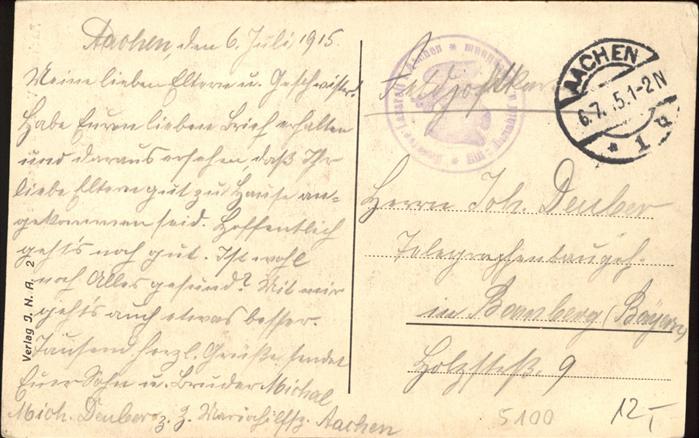 Aachen, den 6. Juli 1915.
Meine lieben Eltern u. Geschwister!
Habe Euren lieben Brief erhalten
und daraus ersehen daß Ihr
liebe Eltern gut zu Hause an-
gekommen seid. Hoffentlich
geht's noch gut. Ist wohl
noch Alles gesund? Mit mir
geht's auch etwas besser.
Tausend herzl. Grüße sendet
Euer Sohn u. Bruder Michal
Mich. Deuber z. Z. Mariahilfsp. Aachen
Verlag J. N. A. 2
Feldpostkarte
AACHEN
6.7.15.1-2N
* 1 d
Herrn Joh. Deuber
Telegraphenbaugeh.
in Bamberg (Bayern)
Holzstrß. 9
5100
12,-